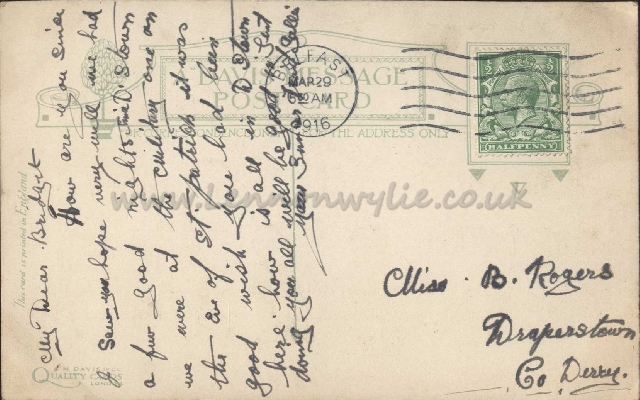 DAVIS'S MESSAGE
POST CARD
FOR CORRESPONDENCE
THE ADDRESS ONLY
BELFAST
MAR 29
AM
1916
HALFPENNY
This card is printed in England
DAVIS & Co
QUALITY CARDS
LONDON
www.lennonwylie.co.uk
My Dear Bridget
How are you since
I saw you hope very well we had
a few good nights in D'town
we were at the ceilidhe one on
the Eve of St Patrick it was
good wish you had been
here how is all in D town
doing you all will be good yet
Your Sincere
Miss B. Rogers
Draperstown
Co Derry.